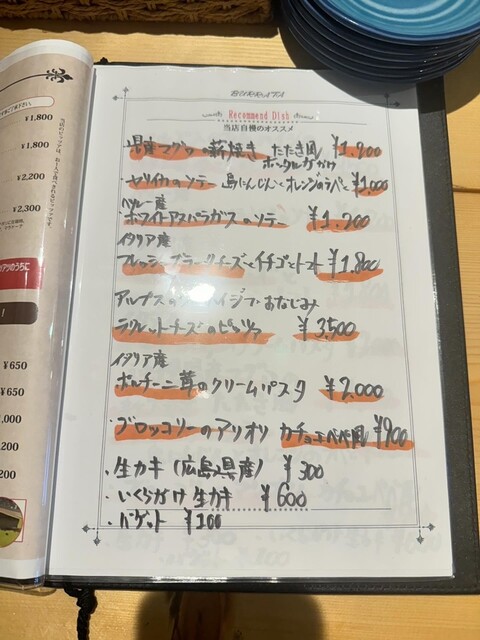 ¥1,800
¥1,800
¥2,200
¥2,300
¥650
¥650
Recommend Dish
当店自慢のオススメ
県産マグロの薪焼き たたき風 ¥1,200
ボッタルガがけ
・セイイカのソテー 島にんじんとオレンジのラペと ¥1,000
ペルー産
・ホワイトアスパラガスのソテー ¥1,200
イタリア産
フレッシュブラータチーズとイチゴとトマト ¥1,800
アルプスの ハイジでおなじみ
ラクレットチーズのピッツァ ¥3,500
イタリア産
ポルチーニ茸のクリームパスタ ¥2,000
・ブロッコリーのアリオリ カチョエペペ風 ¥900
・生カキ(広島県産) ¥300
・いくらがけ 生カキ ¥600
・バゲット ¥100